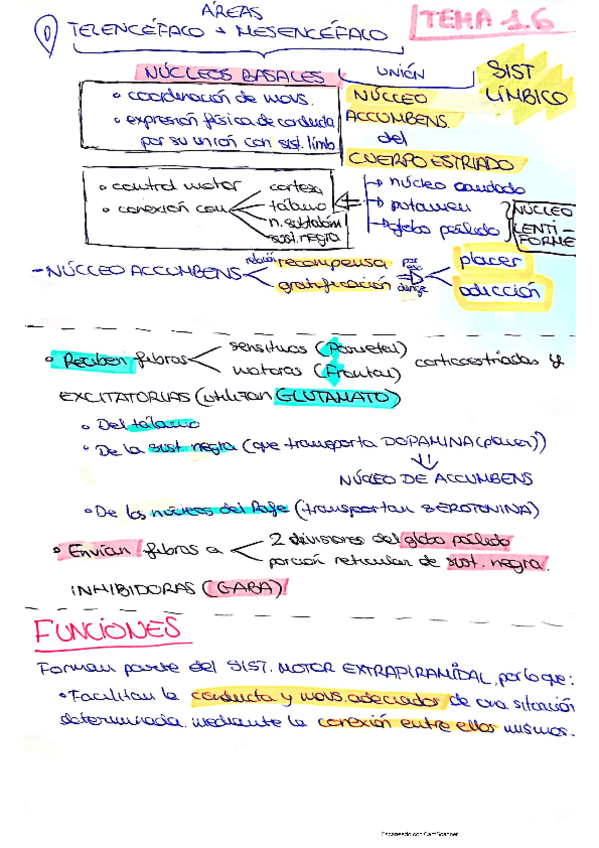 ÁREAS
TELENCÉFALO + MESENCÉFALO
TEMA 1.6
NÚCLEOS BASALES
UNIÓN
SIST LÍMBICO
• coordinación de movs.
• expresión física de conducta
por su unión con sist. límb
NÚCLEO
ACCUMBENS.
del
CUERPO ESTRIADO
• control motor
• conexión con
corteza
tálamo
n. subtalám
sust. negra
→ núcleo caudado
→ putamen
→ globo pálido
NÚCLEO
LENTI-
FORME
- NÚCLEO ACCUMBENS
relación recompensa
gratificación
por eso
dirige
placer
adicción
• Reciben fibras
sensitivas (Parietal)
motoras (Frontal)
corticoestriadas y
EXCITATORIAS (utilizan GLUTAMATO)
• Del tálamo
• De la sust. negra (que transporta DOPAMINA (placer))
NÚCLEO DE ACCUMBENS
• De los núcleos del Rafe (transportan SEROTONINA)
• Envían fibras a
2 divisiones del globo pálido
porción reticular de sust. negra.
INHIBIDORAS (GABA)
FUNCIONES
Forman parte del SIST. MOTOR EXTRAPIRAMIDAL, por lo que:
• Facilitan la conducta y movs. adecuados de una situación
determinada mediante la conexión entre ellos mismos.
Escaneado con CamScanner